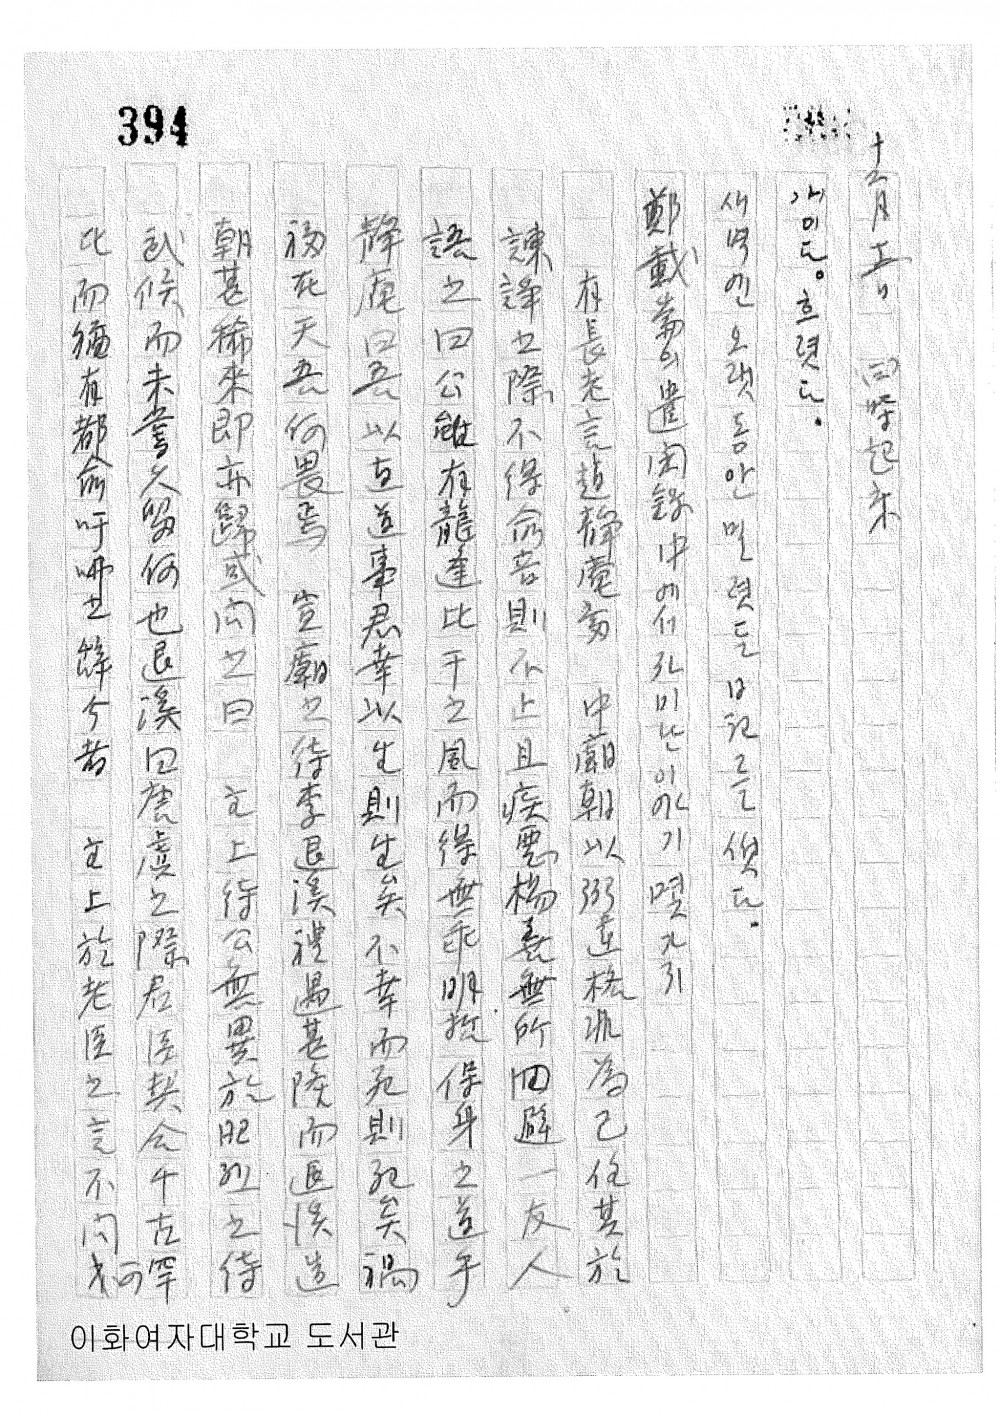 394
十二月 五日 四時起來
개이다。흐렷다.
새벽엔 오랫동안 밀렷든 日記를 썻다.
鄭載崙의 遣閑錄 中에서 자미난 이야기 몇 가지
有長老言趙靜庵當 中廟朝以弼違格非為己任其於
諫諍之際不得俞音則不止且疾惡揚善無所回避一友人
語之曰公雖有龍逢比干之風而得無乖明哲保身之道乎
靜庵曰吾以直道事君幸以生則生矣不幸而死則死矣禍
福在天吾何畏焉 宣廟之待李退溪禮遇甚隆而退溪造
朝甚稀來即亦歸或問之曰 主上待公無異於昭烈之待
武候而未嘗久留何也退溪曰唐虞之際君臣契合千古罕
比而猶有都俞吁咈之辭今者 主上於老臣之言不問可
이화여자대학교 도서관